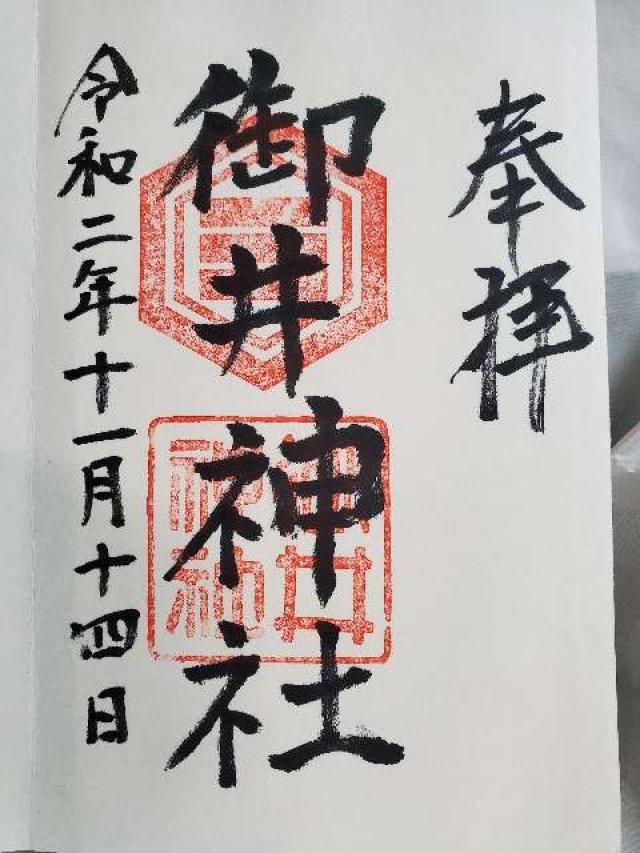 奉拝
御井神社
令和二年十一月十四日
御井神社